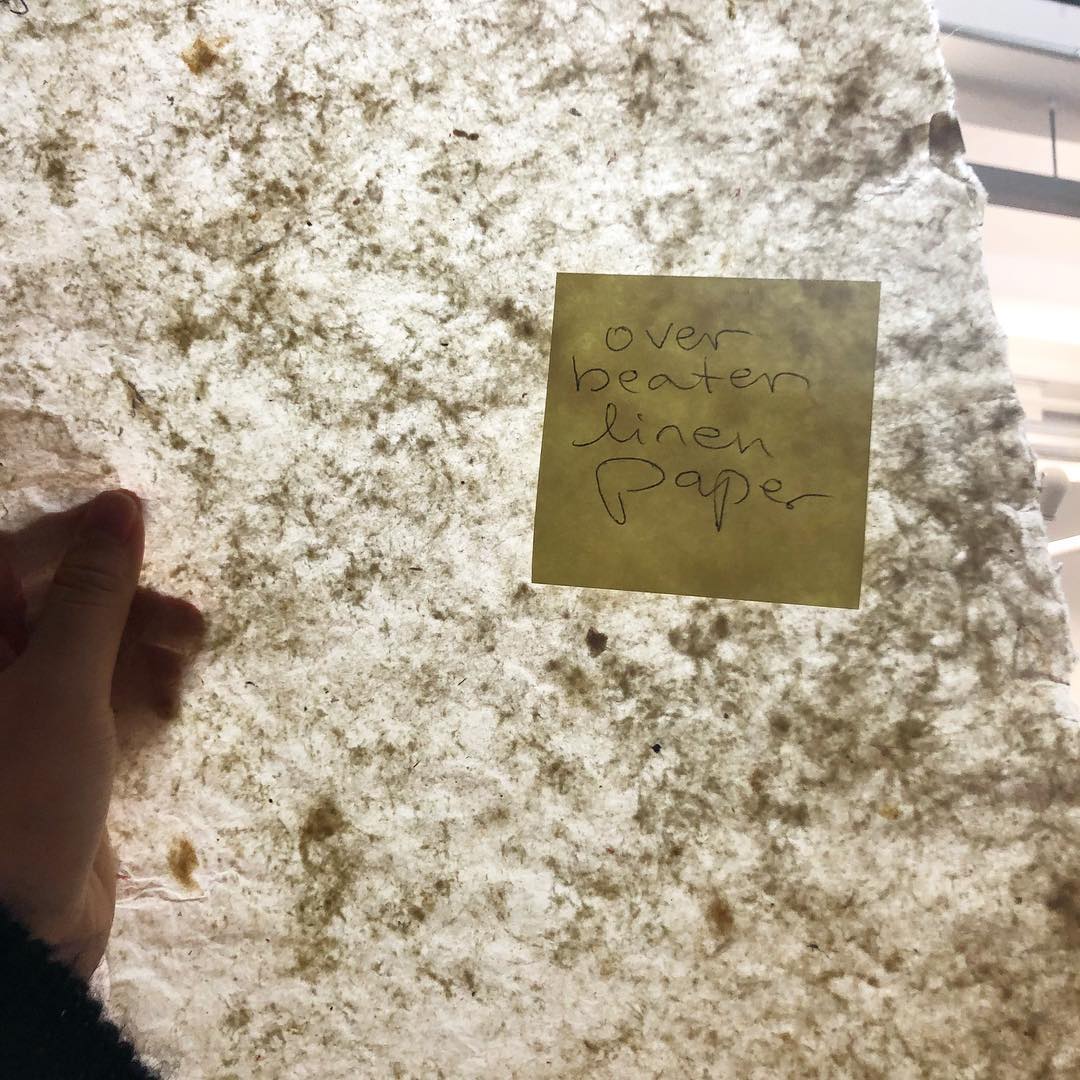 over
beaten
linen
paper